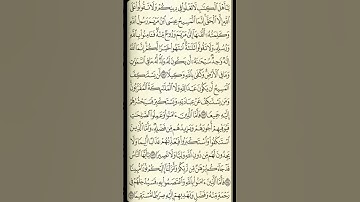 يَٰٓأَهْلَ ٱلْكِتَٰبِ لَا تَغْلُوا۟ فِى دِينِكُمْ وَلَا تَقُولُوا۟ عَلَى
ٱللَّهِ إِلَّا ٱلْحَقَّ إِنَّمَا ٱلْمَسِيحُ عِيسَى ٱبْنُ مَرْيَمَ رَسُولُ ٱللَّهِ
وَكَلِمَتُهُۥٓ أَلْقَىٰهَآ إِلَىٰ مَرْيَمَ وَرُوحٌ مِّنْهُ فَـَٔامِنُوا۟ بِٱللَّهِ
وَرُسُلِهِۦ وَلَا تَقُولُوا۟ ثَلَٰثَةٌ ٱنتَهُوا۟ خَيْرًا لَّكُمْ إِنَّمَا ٱللَّهُ
إِلَٰهٌ وَٰحِدٌ سُبْحَٰنَهُۥٓ أَن يَكُونَ لَهُۥ وَلَدٌ لَّهُۥ مَا فِى ٱلسَّمَٰوَٰتِ
وَمَا فِى ٱلْأَرْضِ وَكَفَىٰ بِٱللَّهِ وَكِيلًا ١٧١ لَّن يَسْتَنكِفَ
ٱلْمَسِيحُ أَن يَكُونَ عَبْدًا لِّلَّهِ وَلَا ٱلْمَلَٰٓئِكَةُ ٱلْمُقَرَّبُونَ
وَمَن يَسْتَنكِفْ عَنْ عِبَادَتِهِۦ وَيَسْتَكْبِرْ فَسَيَحْشُرُهُمْ
إِلَيْهِ جَمِيعًا ١٧٢ فَأَمَّا ٱلَّذِينَ ءَامَنُوا۟ وَعَمِلُوا۟ ٱلصَّٰلِحَٰتِ
فَيُوَفِّيهِمْ أُجُورَهُمْ وَيَزِيدُهُم مِّن فَضْلِهِۦ وَأَمَّا ٱلَّذِينَ
ٱسْتَنكَفُوا۟ وَٱسْتَكْبَرُوا۟ فَيُعَذِّبُهُمْ عَذَابًا أَلِيمًا وَلَا
يَجِدُونَ لَهُم مِّن دُونِ ٱللَّهِ وَلِيًّا وَلَا نَصِيرًا ١٧٣ يَٰٓأَيُّهَا ٱلنَّاسُ
قَدْ جَآءَكُم بُرْهَٰنٌ مِّن رَّبِّكُمْ وَأَنزَلْنَآ إِلَيْكُمْ نُورًا مُّبِينًا
١٧٤ فَأَمَّا ٱلَّذِينَ ءَامَنُوا۟ بِٱللَّهِ وَٱعْتَصَمُوا۟ بِهِۦ فَسَيُدْخِلُهُمْ فِى
رَحْمَةٍ مِّنْهُ وَفَضْلٍ وَيَهْدِيهِمْ إِلَيْهِ صِرَٰطًا مُّسْتَقِيمًا